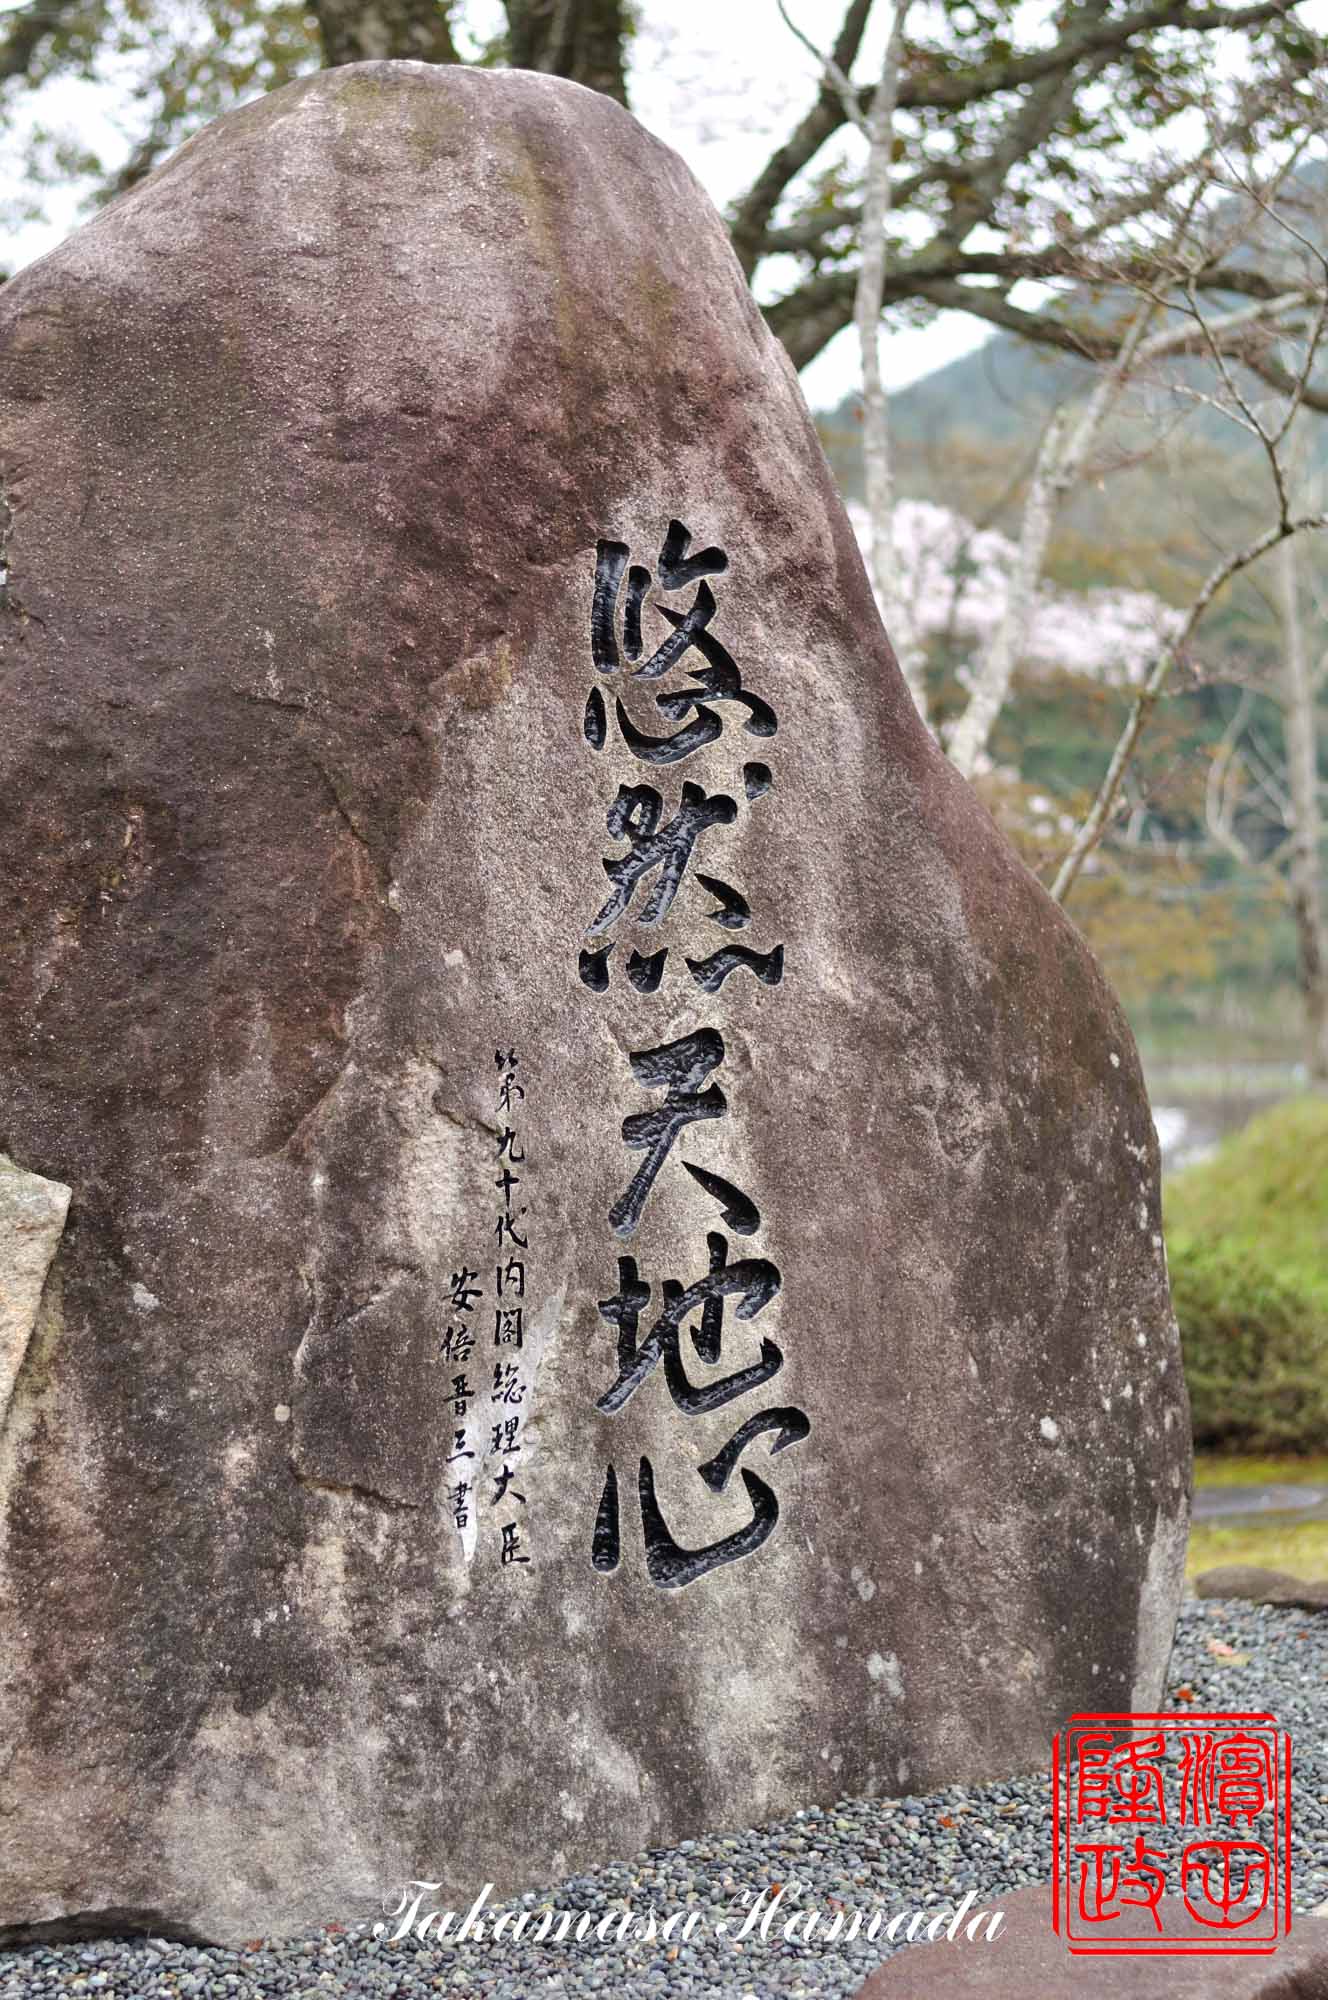 悠然天地心
第九十代内閣総理大臣
安倍晋三書
Takamasa Hamada
濱田
隆政